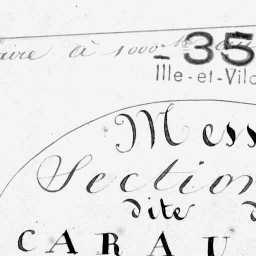 aire à 1000
- 35
Ille-et-Vil
Mess
Section
dite
CARAU